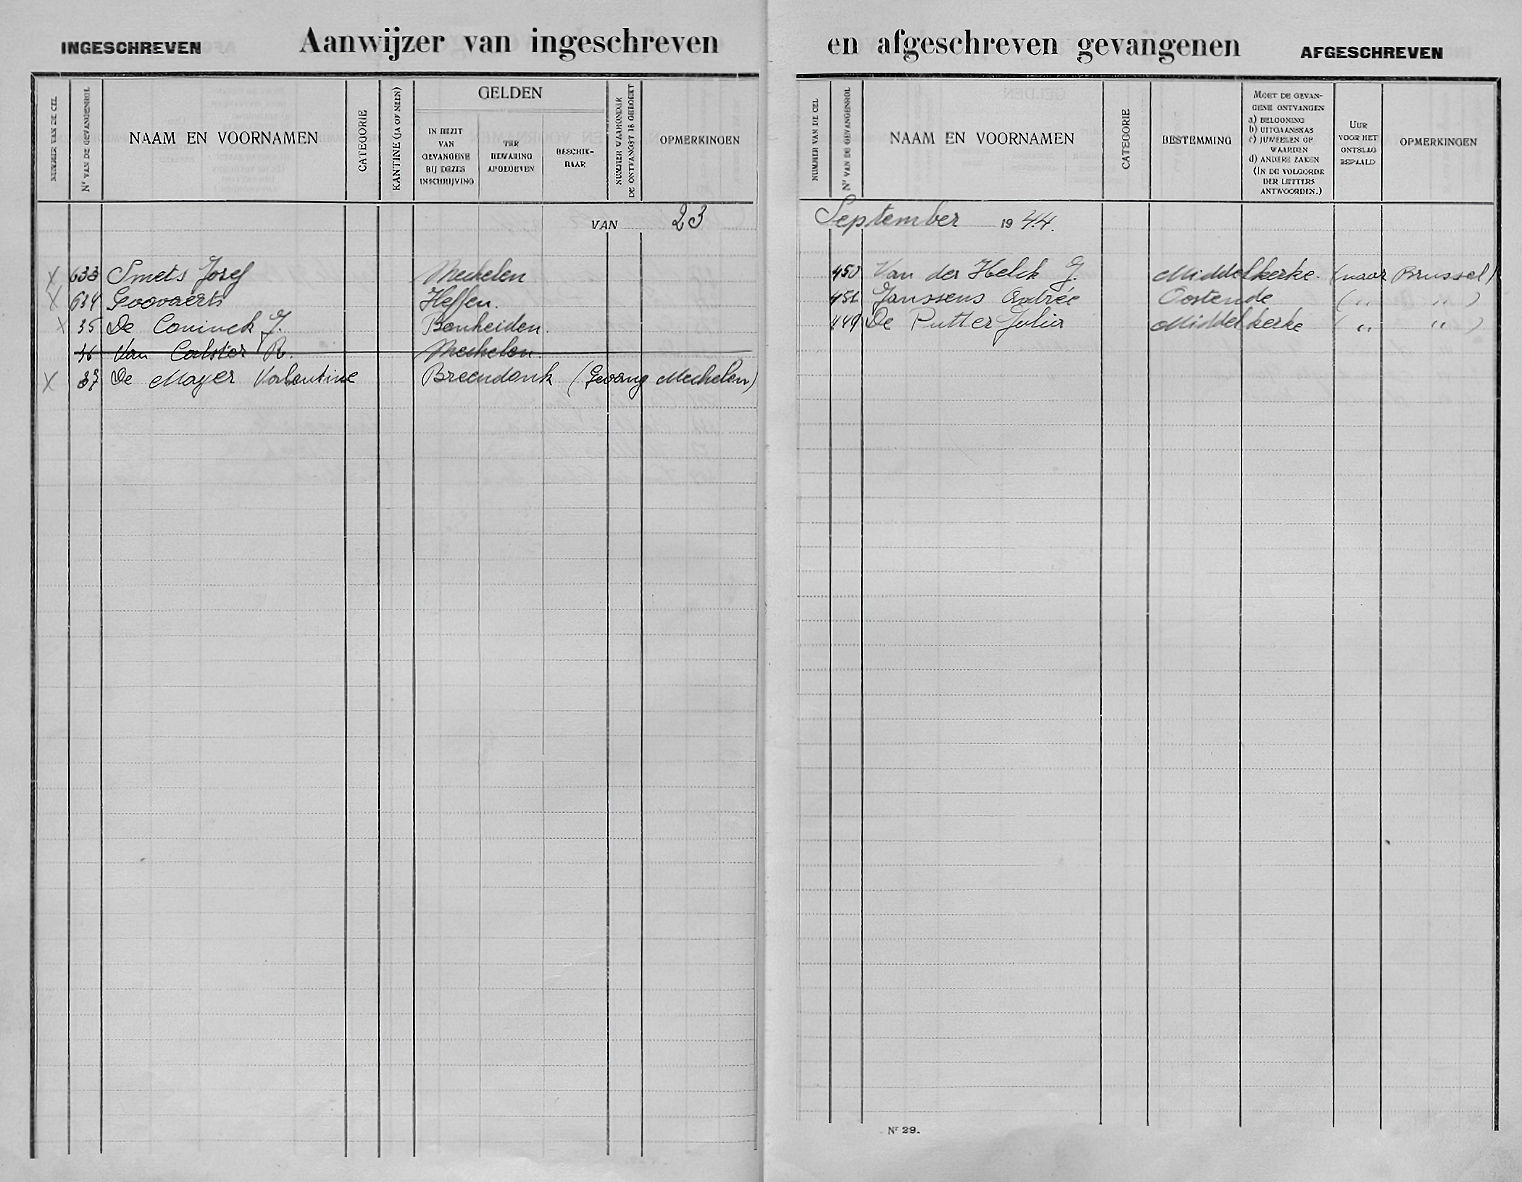 INGESCHREVEN
Aanwijzer van ingeschreven
NUMMER VAN DE CEL
Nr VAN DE GEVANGENROL
NAAM EN VOORNAMEN
CATEGORIE
KANTINE (JA OF NEEN)
GELDEN
IN BEZIT
VAN
GEVANGENE
BIJ DEZES
INSCHRIJVING
TER
BEWARING
AFGEGEVEN
BESCHIK-
BAAR
NUMMER WAARONDER
DE ONTVANGST IS GEBOEKT
OPMERKINGEN
VAN 23
X 633 Smets Josef Mechelen
X 634 Goovaerts Heffen.
X 35 De Coninck J. Bonheiden.
36 Van Calster R. Mechelen
X 37 De Mayer Valentine Breendonk (Gevang Mechelen)
en afgeschreven gevangenen
AFGESCHREVEN
NUMMER VAN DE CEL
Nr VAN DE GEVANGENROL
NAAM EN VOORNAMEN
CATEGORIE
BESTEMMING
MOET DE GEVAN-
GENE ONTVANGEN
a) BELOONING
b) UITGAANSKAS
c) JUWEELEN OF
WAARDEN
d) ANDERE ZAKEN
(IN DE VOLGORDE
DER LETTERS
ANTWOORDEN.)
UUR
VOOR HET
ONTSLAG
BEPAALD
OPMERKINGEN
September 1944.
450 Van der Helck G. Middelkerke. (naar Brussel)
451 Janssens Andrée Oostende ( „ „ )
449 De Putter Julia Middelkerke ( „ „ )
Nr 29.